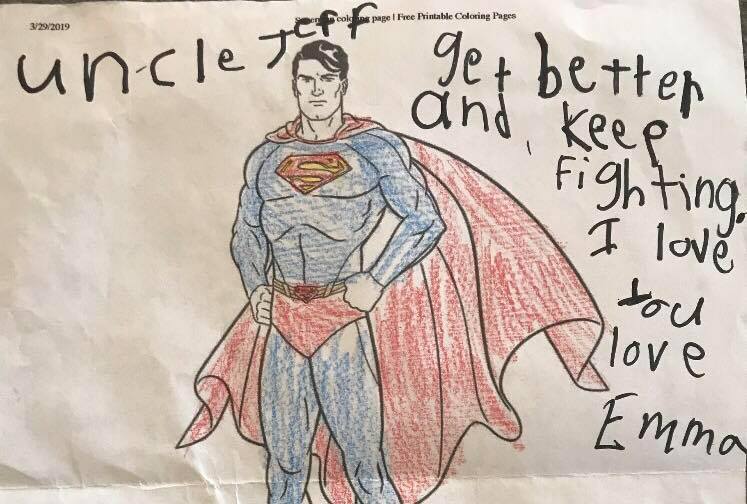 3/29/2019
Superman coloring page | Free Printable Coloring Pages
uncle Jeff
get better
and, keep
fighting.
I love
You
love
Emma